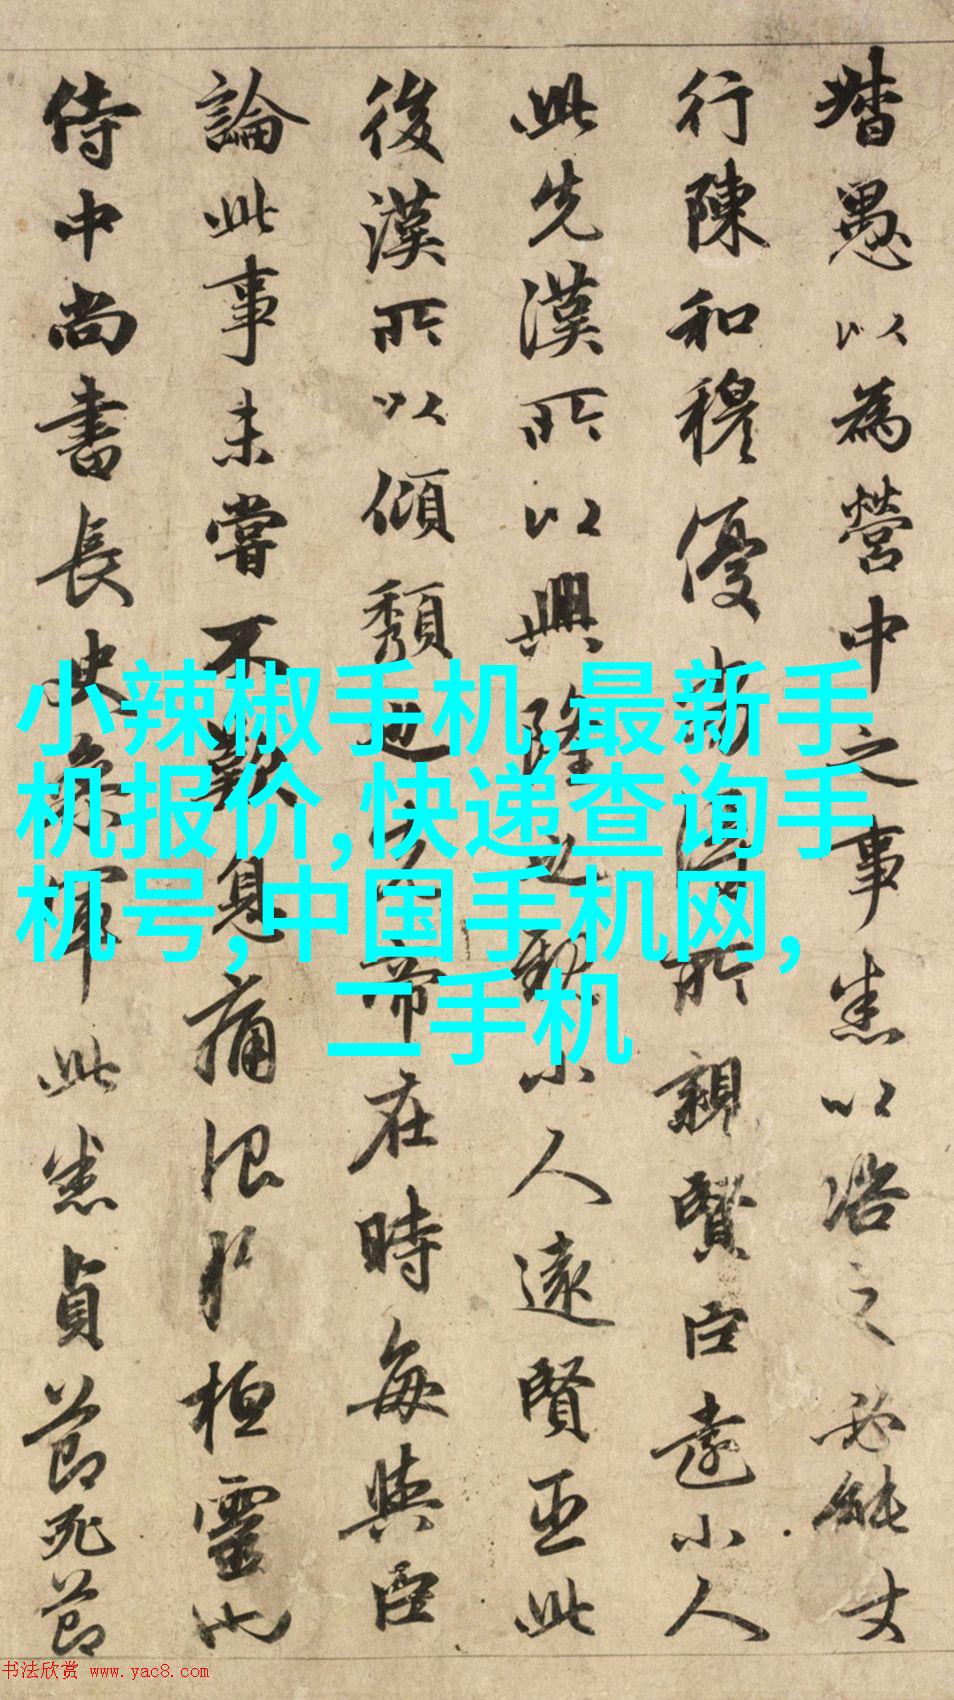 督愚以為營中之事悉以諮之必能丈
行陳和穆優劣得所親賢臣遠小人
此先漢所以興隆也親小人遠賢臣此
後漢所以傾頹也先帝在時每與臣
論此事未嘗不歎息痛恨於桓靈也
侍中尚書長史參軍此悉貞節死節
小辣椒手机,最新手
机报价,快递查询手
机号,中国手机网,
二手机
书法欣赏 www.yac8.com